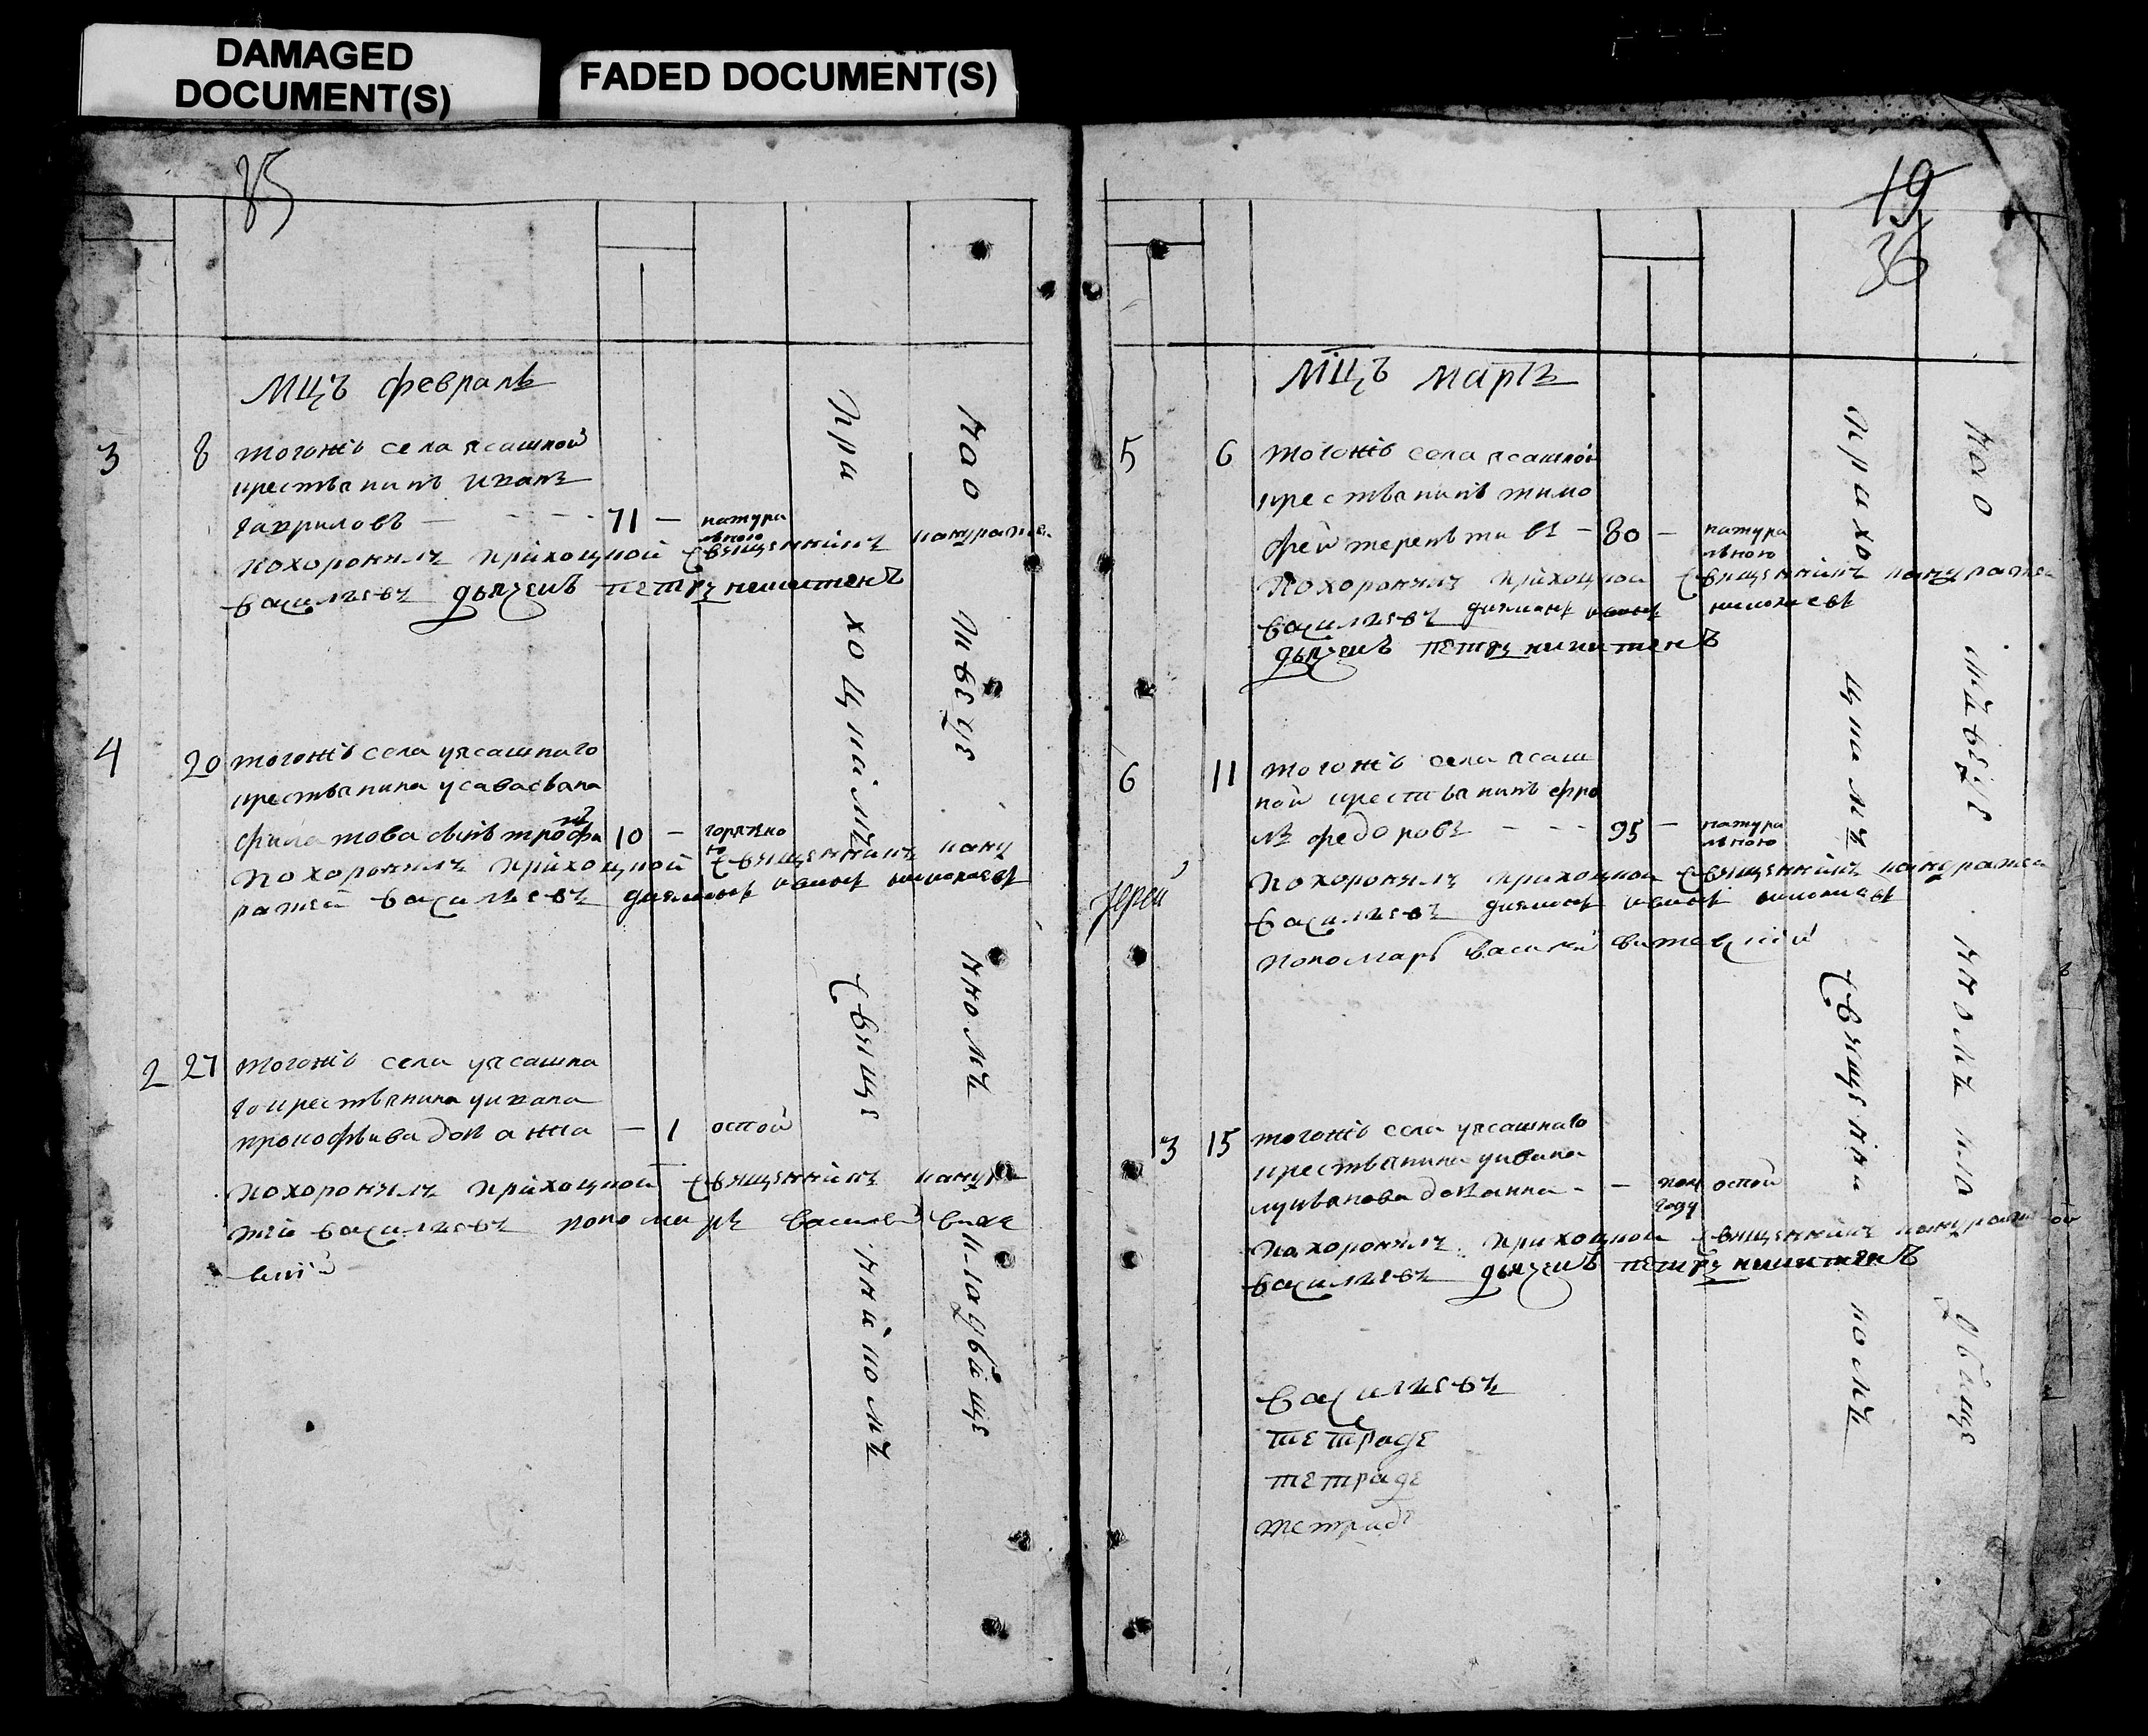 DAMAGED
DOCUMENT(S)
FADED DOCUMENT(S)
85
МЦЪ февраль
3 8 тогожъ села ясашной
крестьянинъ иванъ
гавриловъ — 71 — натура
льною
похоронилъ приходцкой священникъ кандратей
васильевъ дьячекъ петръ никитенъ
4 20 тогожъ села уясашнаго
крестьянина усавасьяна
филатова сынъ трофи
мъ 10 — горячко
ю
похоронилъ приходцкой священникъ канд
ратей васильевъ диаконъ иванъ николаевъ
2 27 тогожъ села уясашна
го крестьянина уивана
прокофьива дочь анна — 1 оспой
похоронилъ приходцкой священникъ кандра
тей васильевъ пономарь василей
приходцкимъ священникомъ
на отведенномъ кладбище
19
36
МЦЪ мартъ
5 6 тогожъ села ясашной
крестьянинъ тимо
фей терентьивъ — 80 — натура
льною
похоронилъ приходцкой священникъ кандратей
васильевъ диаконъ иванъ николаевъ
дьячекъ петръ никитенъ
6 11 тогожъ села ясаш
ной крестьянинъ фро
лъ федоровъ — 95 — натура
льною
похоронилъ приходцкой священникъ кандратей
иерей
васильевъ диаконъ иванъ николаевъ
пономарь василей
3 15 тогожъ села уясашнаго
крестьянина уивана
дочь анна — — пол
году оспой
похоронилъ приходцкой священникъ кандратей
васильевъ дьячекъ петръ никитенъ
васильевъ
тетраде
тетраде
тетрадь
приходцкимъ священникомъ
на отведенномъ кладбище